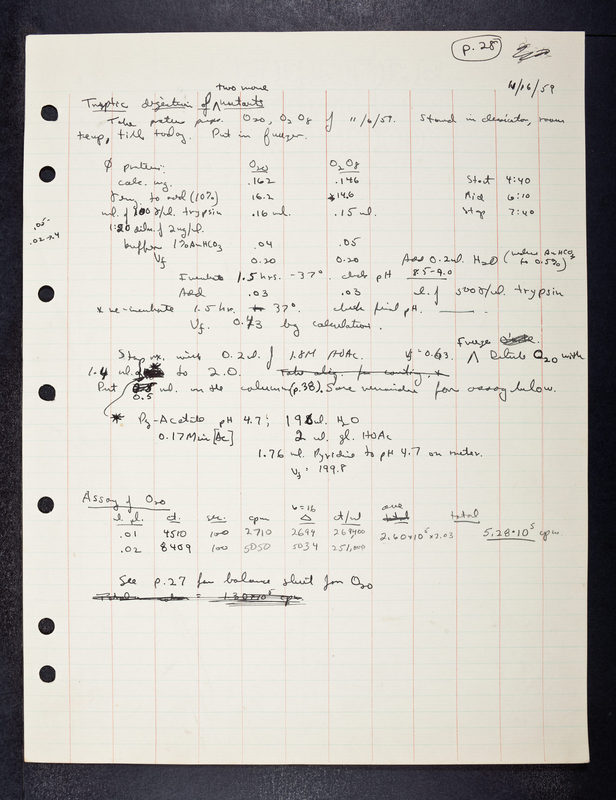 p. 28
11/16/59
two more
Tryptic digestion of ^ mutants
Take protein preps. O20, O2O8 of 11/6/59. Stand in dessicator, room
temp, till today. Put in freezer.
Ø protein: O20 O2O8
calc. mg. .162 .146 Start 4:40
to add (10%) 16.2 14.6 Add 6:10
ml. of trypsin .16 ml. .15 ml. Stop 7:40
1:20 diln. of 2 mg/ml.
.05-
.02 x 4
buffer 1% AmHCO3 .04 .05
Vf 0.20 0.20 Add 0.2 ml. H2O (makes AmHCO3 to 0.5%)
Incubate 1.5 hrs. - 37°. check pH 8.5-9.0
Add .03 .03 ml. of 500 γ/ml. trypsin
* re-incubate 1.5 hrs. 37°. check final pH.
Vf. 0.43 by calculation.
Stop rx. with 0.2 ml. of 1.8M HOAc. Vf = 0.63. Freeze ^ Dilute O20 with
1.4 ml. of to 2.0. Take aliq. for counting. *
Put 0.5 ml. on the column (p.38). Save remainder for assay below.
* Py-Acetate pH 4.7; 196 ml. H2O
0.17M in [Ac] 2 ml. gl. HOAc
1.76 ml. Pyridine to pH 4.7 on meter.
Vf = 199.8
Assay of O20
ml. pl. ct. sec. cpm b=16 Δ ct/ml ave total total
.01 4510 100 2710 2694 269400 2.60x10⁵x2.03 5.28·10⁵ cpm
.02 8409 100 5050 5034 251,000
See p.27 for balance sheet for O20
= 1.30x10⁵ cpm